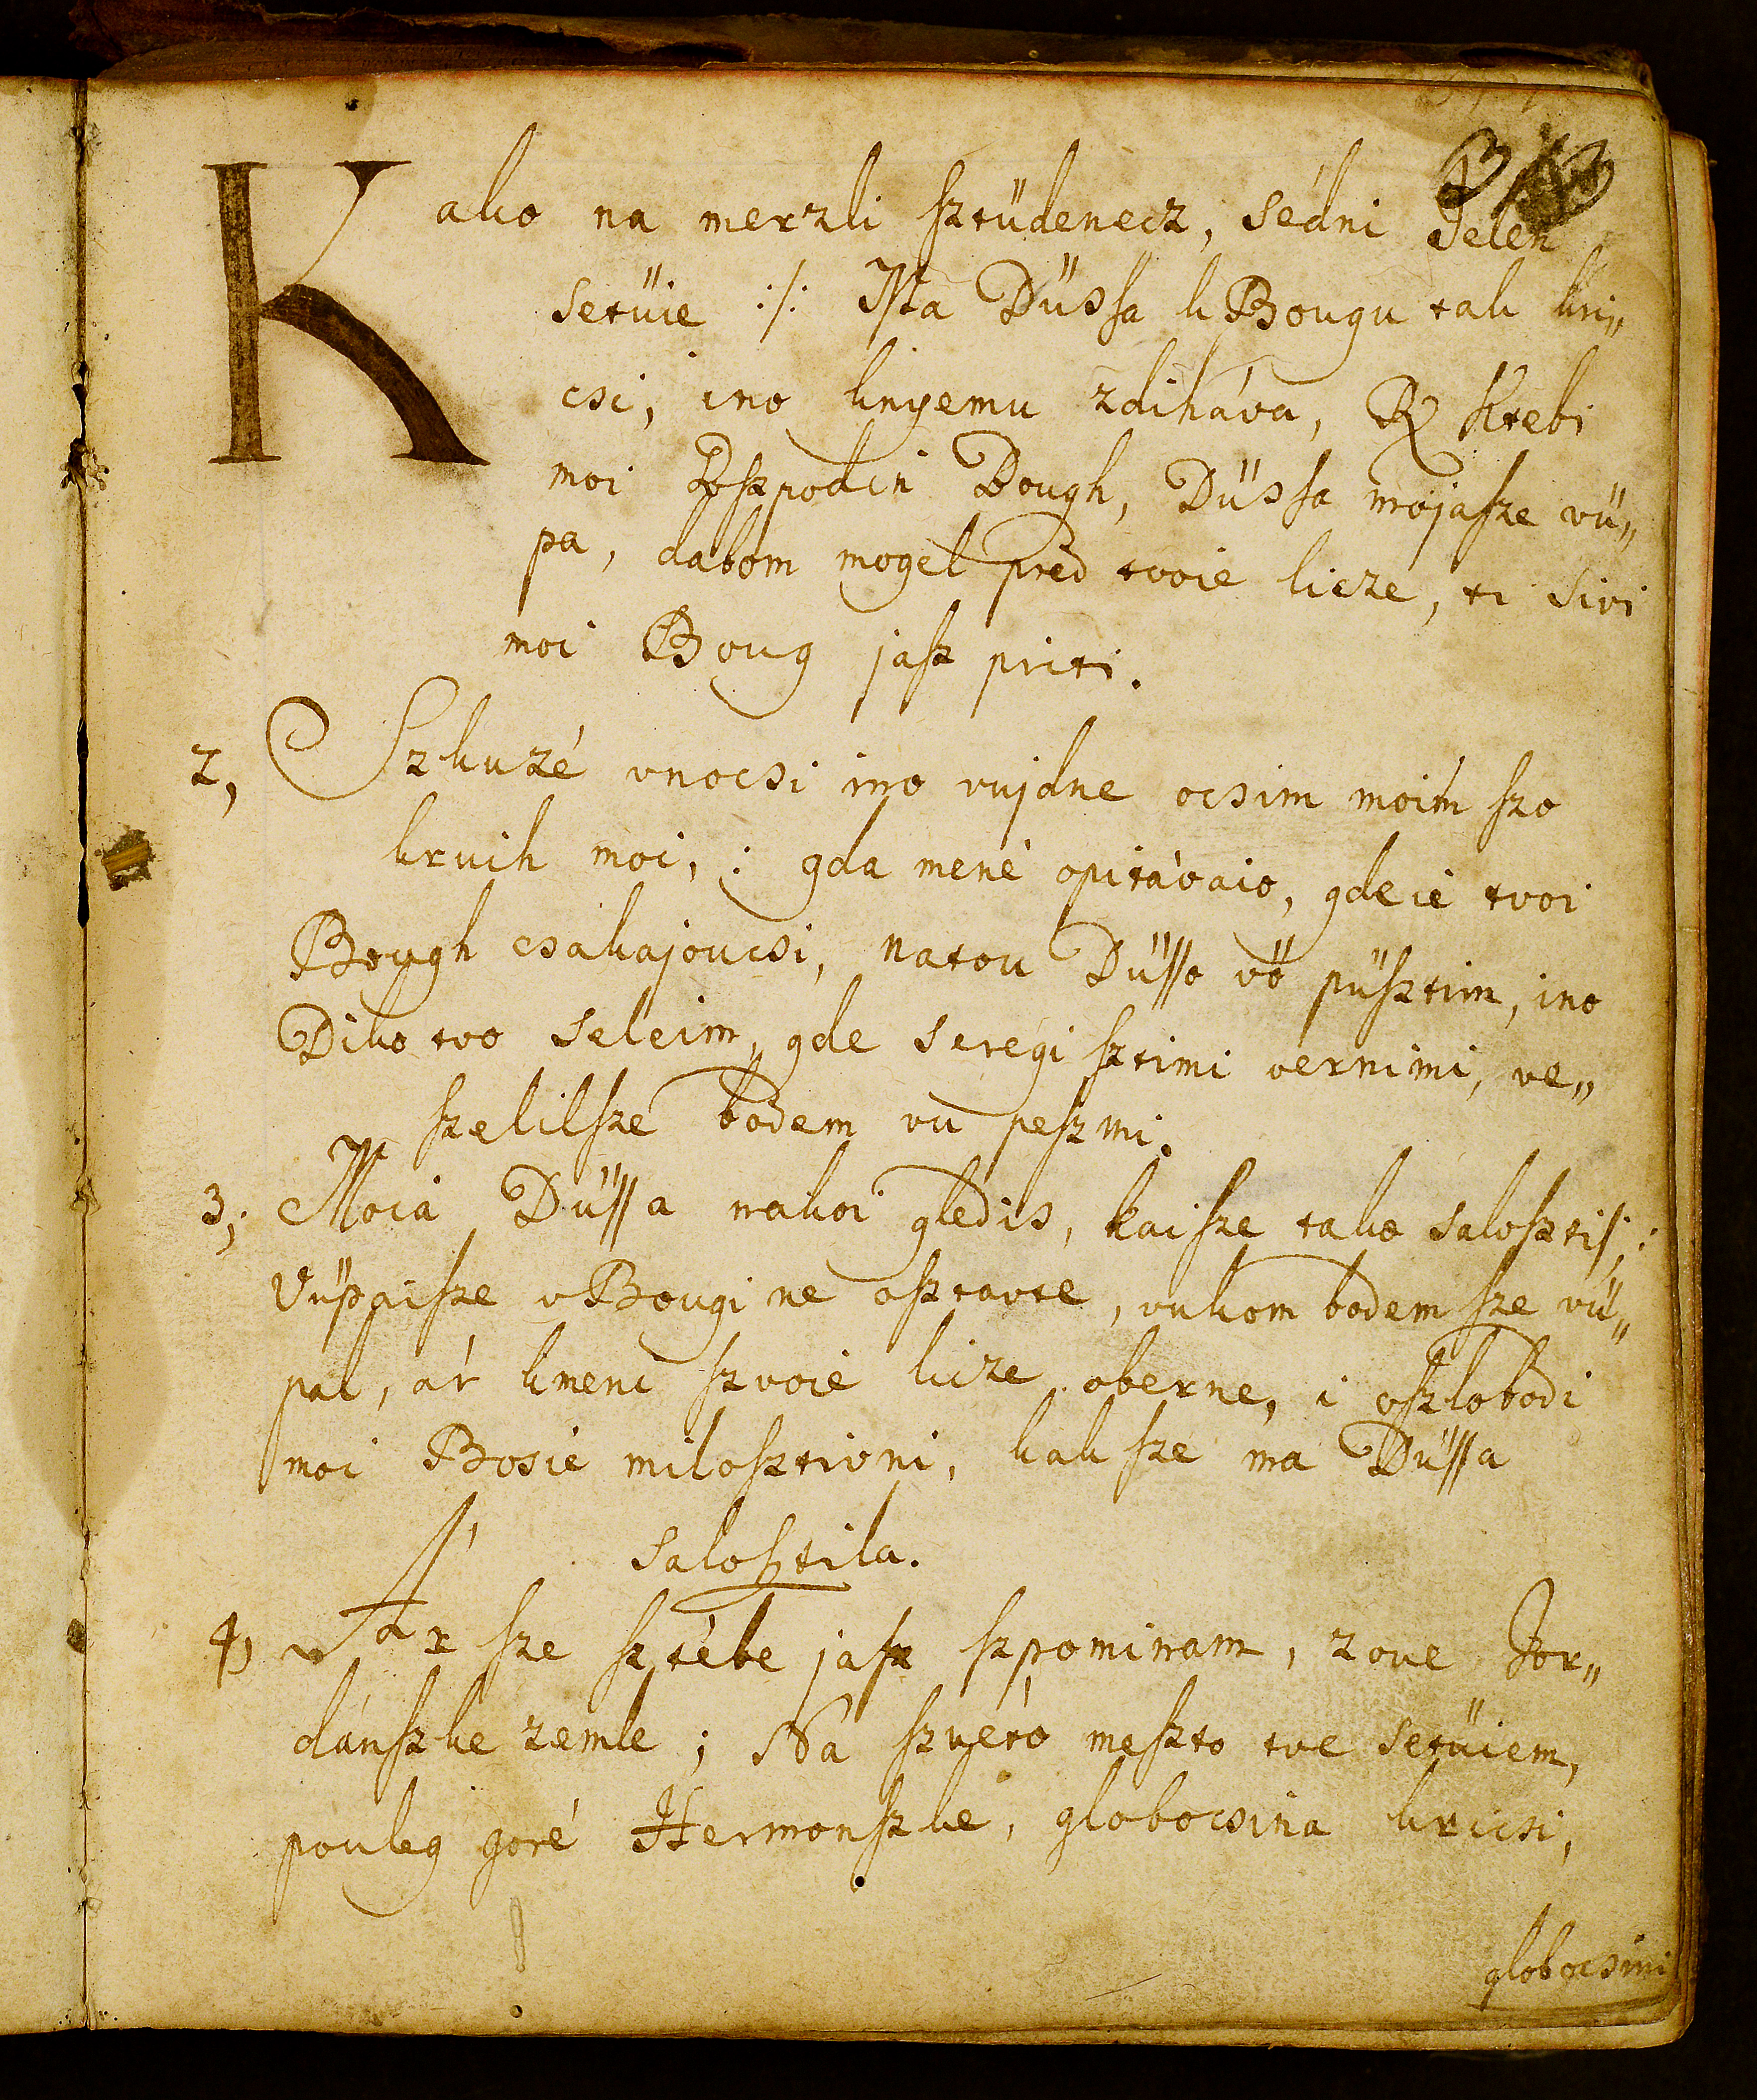 Kako na merzli sztüdenecz, sédni Jelen
setüie :/: Ista Düssa k Bougu tak kri„
csi, ino knyemu zdiháva, R Ktebi
moi Goszpodin Bough, Düssa mojasze vü„
pa, dabom mogel pred tvoie licze, ti sivi
moi Boug jasz priti.
2, Szkuzé vnocsi ino vujdne ocsim moim szo
kruih moi, : gda mené opitávaio, gdeié tvoi
Bough csakajoucsi, natou Düsso vö püsztim, ino
Diko tvo seleim, gde seregi sztimi vernimi, ve„
szelilsze bodem vu peszmi.
3; Moia Düssa nakoi gledis, kaisze tako salosztis, :
Vüpaisze v Bougi ne osztavte, vukom bodem sze vü„
pal, ár kmeni szvoié licze oberne, i oszlobodi
moi Bosié milosztivni, kak sze ma Düssa
salosztila.
4, Ar sze sztébe jasz szpominam, zove Jor„
dánszke zemle ; Na szvéto meszto tve setüiem,
pouleg goré Hermonszke, globocsina kricsi,
globocsini